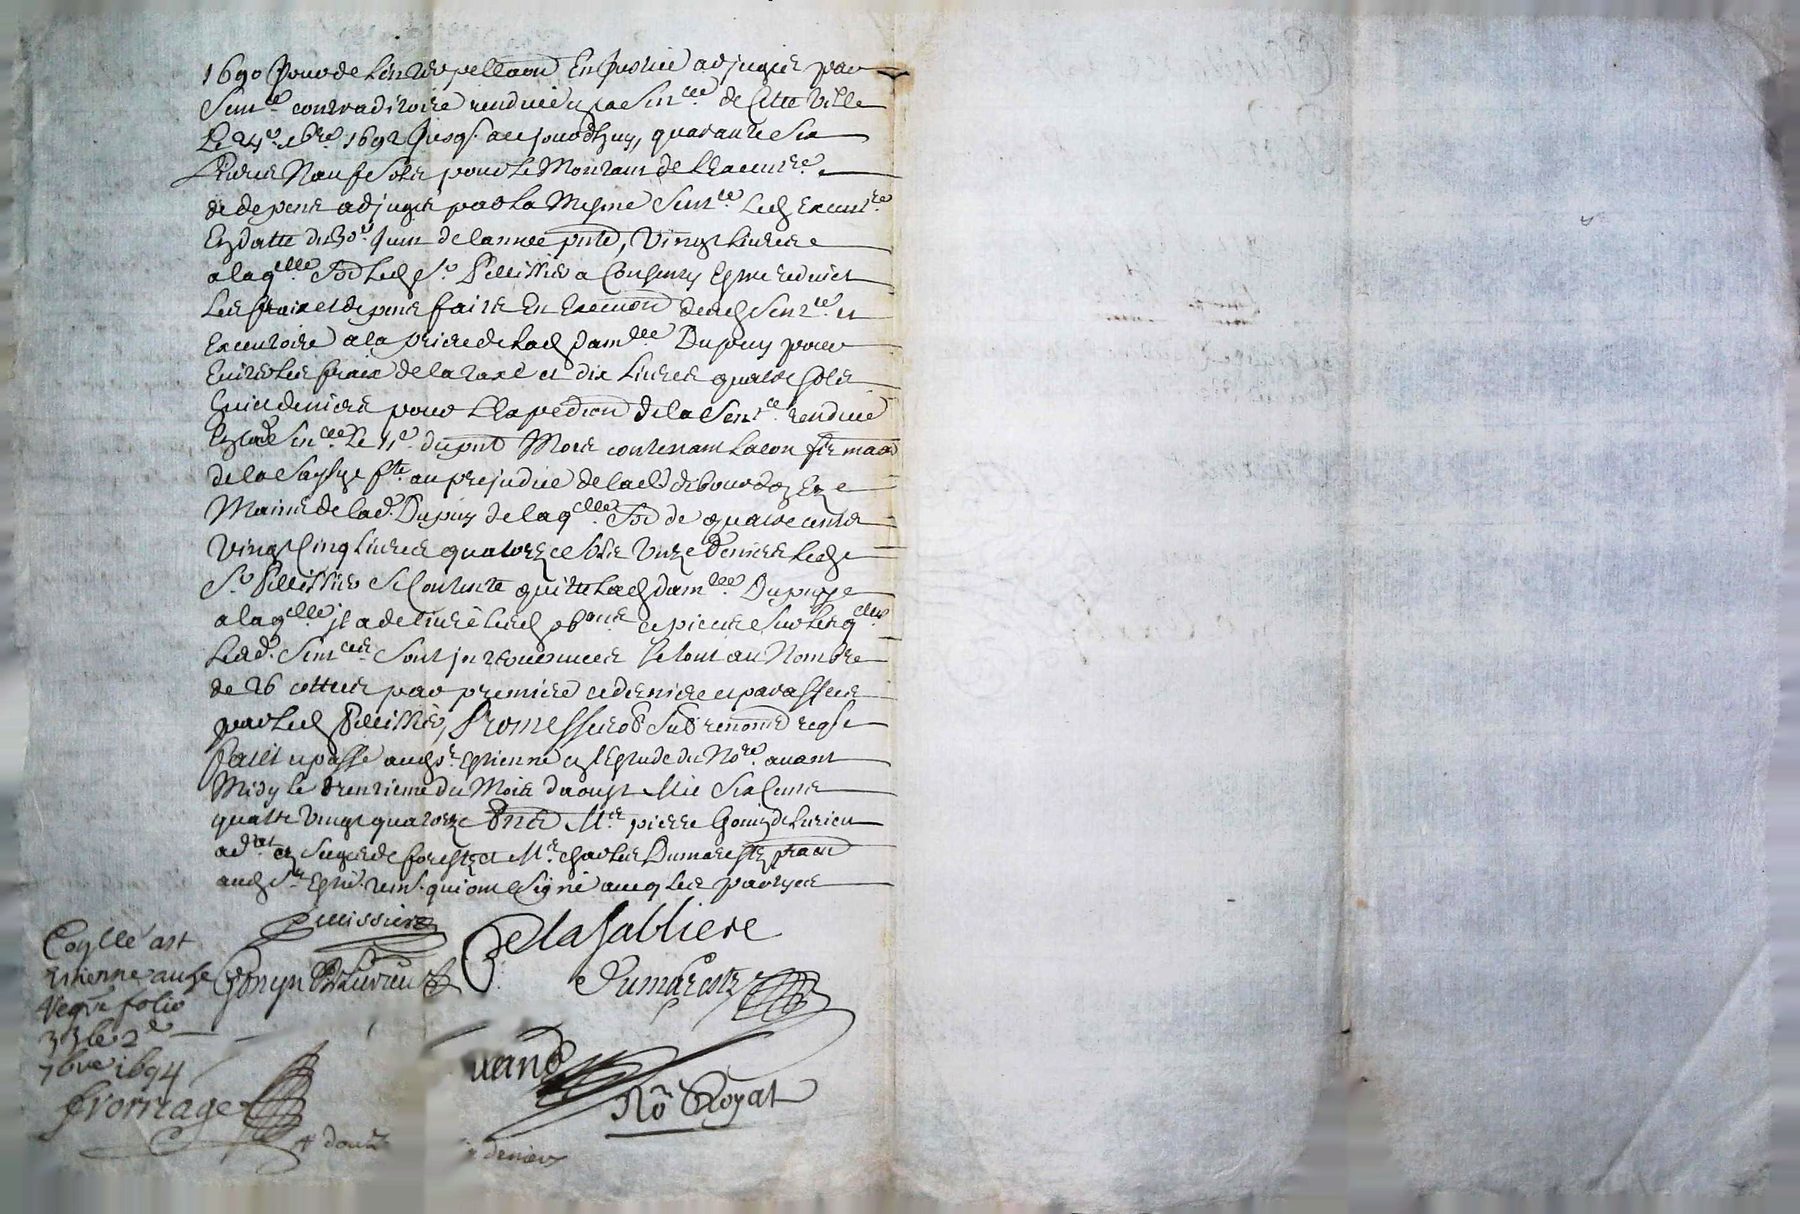 1690 Jour de Linterpellaon En Justice adjugée par
Sentce contraditoire rendue upa Senceé de Cette Ville
Le 24e xbre 1692 Jusqs aujourdhuy, quarante Six
Livres Neuf Sols pour Le Montant de Lexecutre
de depens adjugés par La Mesme Sentce Led Executre
En datte du 30e Juin de lannée pnte, Vingt Livres
a laqelle Sôe Led Sr Pellissier a Consenty Estre reduict
Les fraix et depens faits En Execuôn de lad Sentce et
Executoire a la priere de Lad Damlle Dupuy pour
Eviter Les fraix de la taxe et dix Livres quatre sols
huict deniers pour Lexpediôn de la Sentce rendue
En lad Sencée Le 11e du pnt Mois contenant La confirmaôn
de la Saysye fte au prejudice de lad debourdon Ez
Mains de lad. Dupuy de laqelle Sôe de quatre cents
Vingt Cinq Livres quatorze Sols Unze Deniers Led
Sr Pellissier Se Contente quitte Lad Damlle Dupuy
a laqelle il a delivré Lesd obons et pieces Sur Lesqelles
Lesd. Sentces Sont Intervenuees Le tout au Nombre
de 26 cottées par premiere et derniere et paraffées
par Led Pellissier, Promess. ob Sub renonô reqse
Faict et passé aud St Estienne En lEstude du Nore avant
Midy le trentieme du Mois daoust Mil Six Cents
quattre Vingt quatorze Pnts Mre pierre Gonin de Lurieu
advat En Siege de forests et Me Charles Dumarestz praôn
aud St Estne temt. qui ont Signé avecq Les partyes
Pellissier
Delasabliere
Gonyn De Lurieu
Dumarestz
Coyllé a St
Estienne au se
Regre folio
33 le 2e
7bre 1694
fromage
Nore Royal
+ douze
deniers